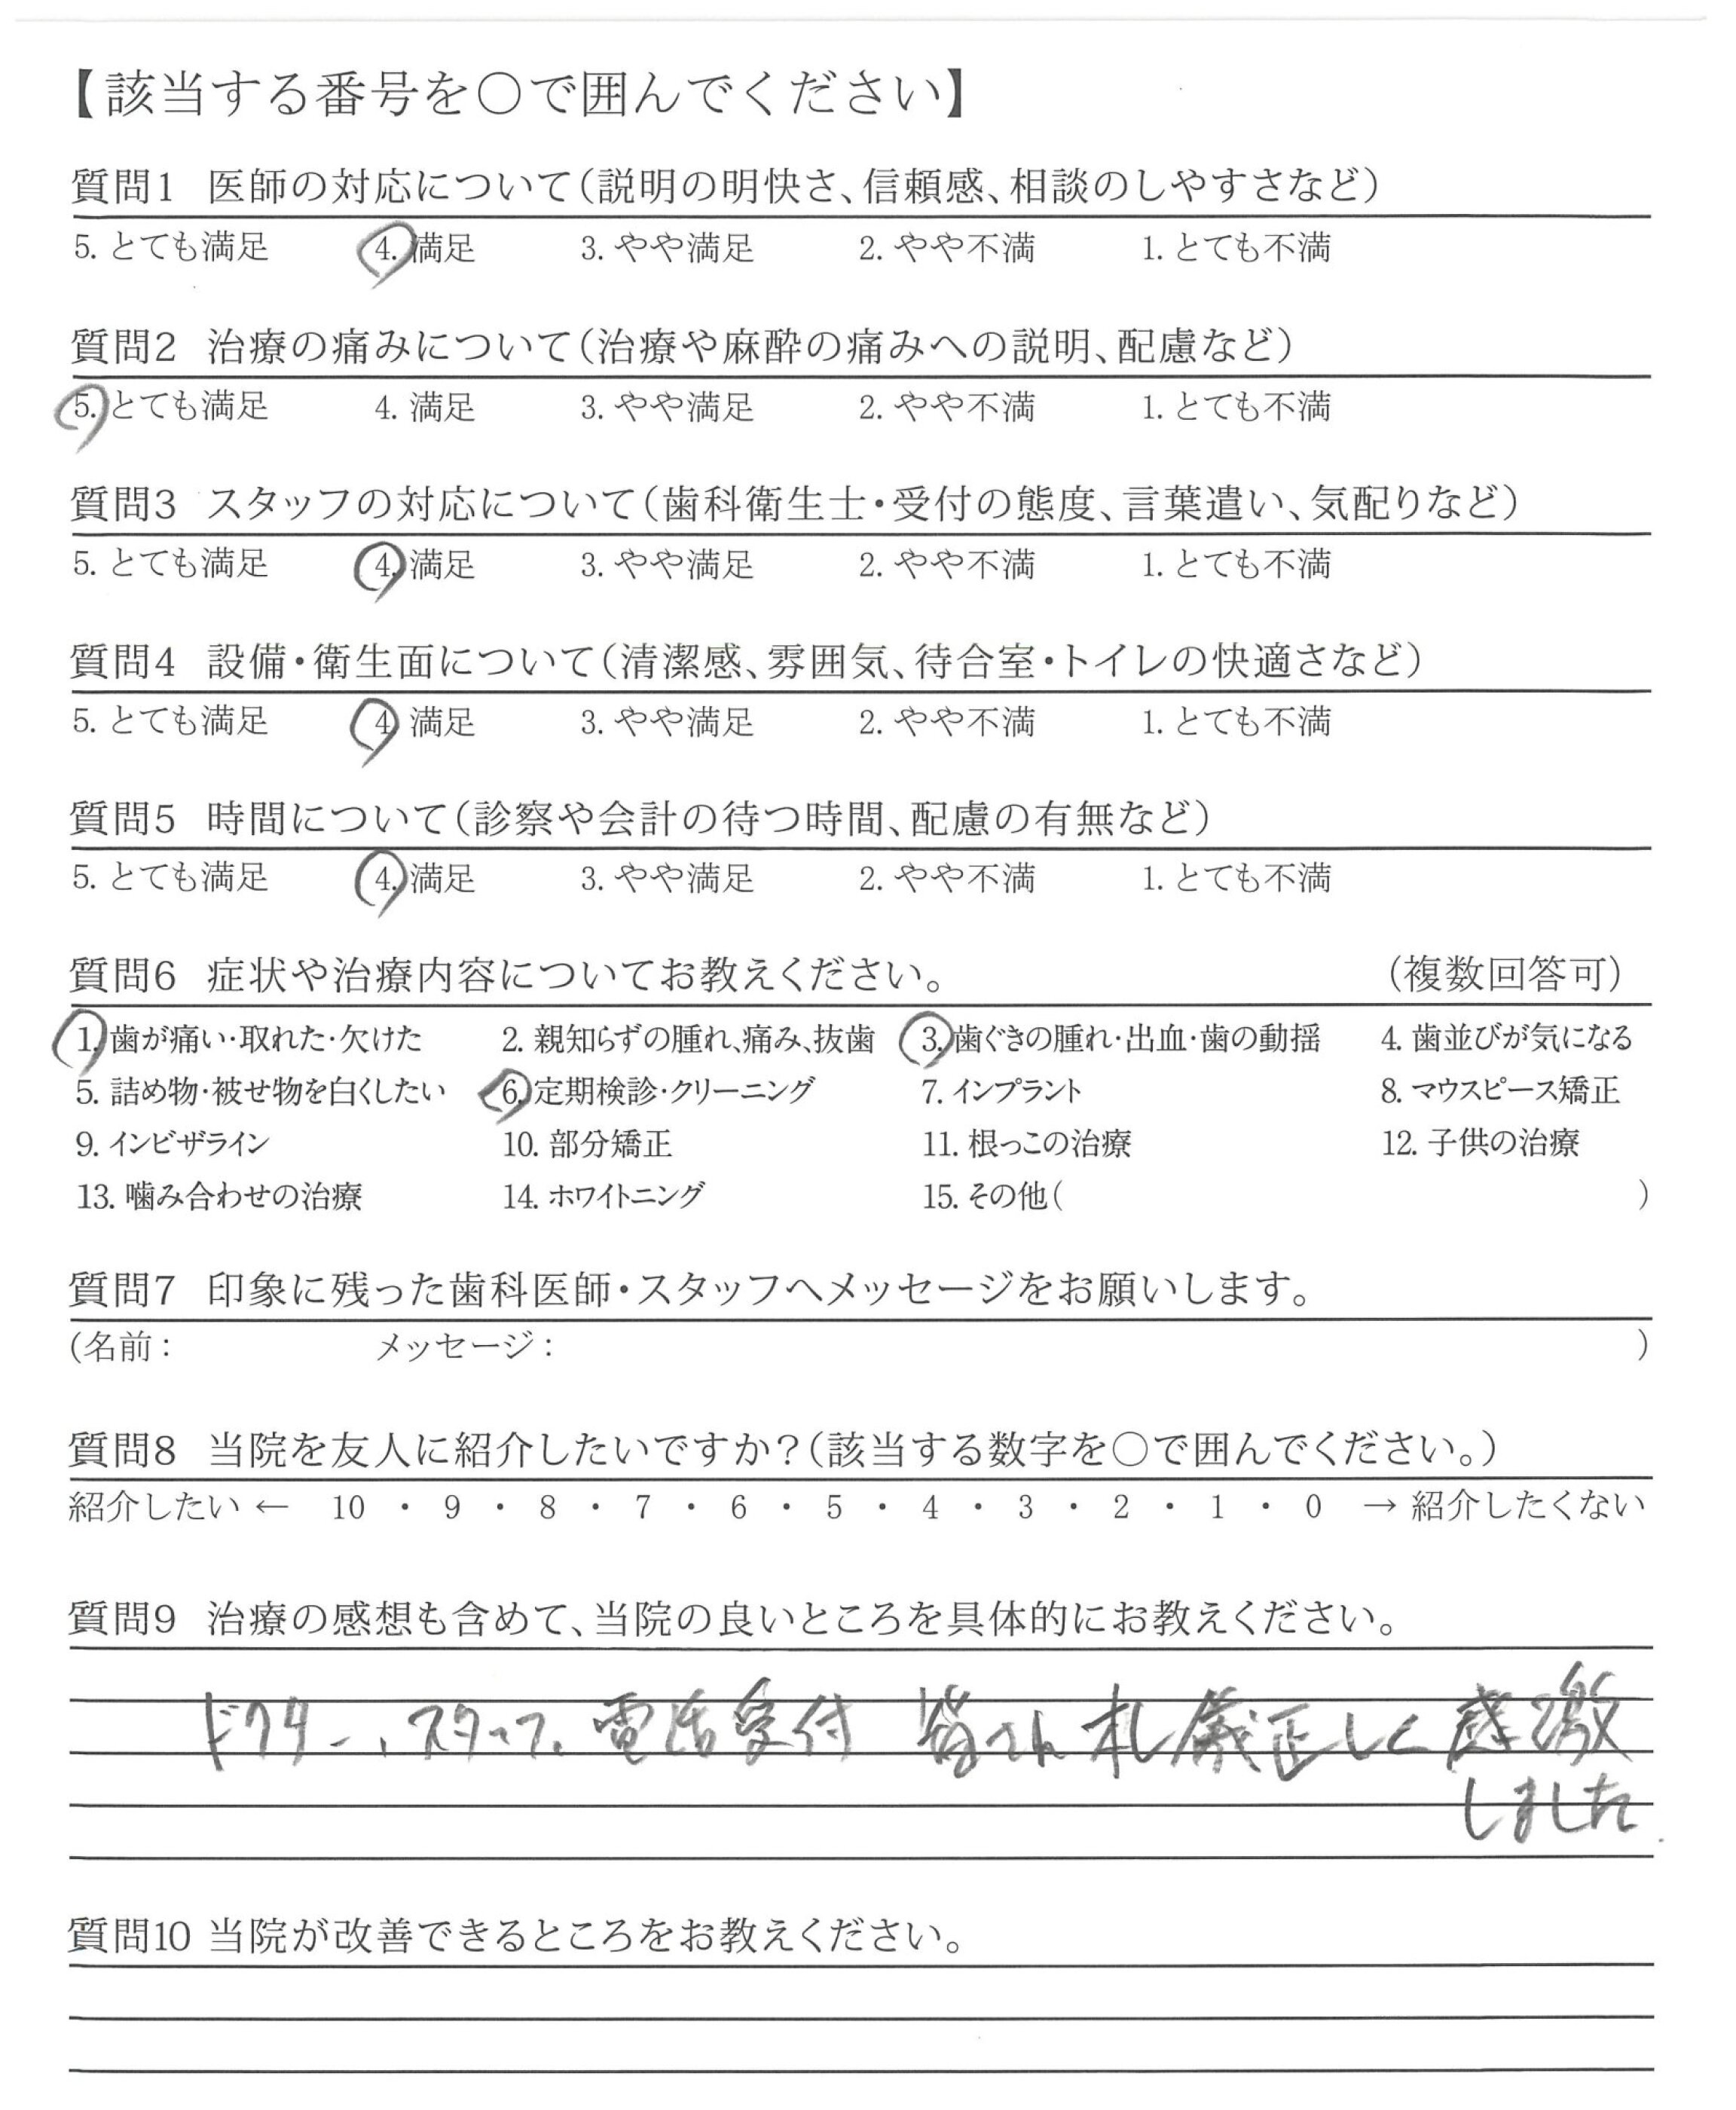 【該当する番号を○で囲んでください】
質問1 医師の対応について(説明の明快さ、信頼感、相談のしやすさなど)
5. とても満足 4. 満足 3. やや満足 2. やや不満 1. とても不満
質問2 治療の痛みについて(治療や麻酔の痛みへの説明、配慮など)
5. とても満足 4. 満足 3. やや満足 2. やや不満 1. とても不満
質問3 スタッフの対応について(歯科衛生士・受付の態度、言葉遣い、気配りなど)
5. とても満足 4. 満足 3. やや満足 2. やや不満 1. とても不満
質問4 設備・衛生面について(清潔感、雰囲気、待合室・トイレの快適さなど)
5. とても満足 4. 満足 3. やや満足 2. やや不満 1. とても不満
質問5 時間について(診察や会計の待つ時間、配慮の有無など)
5. とても満足 4. 満足 3. やや満足 2. やや不満 1. とても不満
質問6 症状や治療内容についてお教えください。 (複数回答可)
1. 歯が痛い・取れた・欠けた 2. 親知らずの腫れ、痛み、抜歯 3. 歯ぐきの腫れ・出血・歯の動揺 4. 歯並びが気になる
5. 詰め物・被せ物を白くしたい 6. 定期検診・クリーニング 7. インプラント 8. マウスピース矯正
9. インビザライン 10. 部分矯正 11. 根っこの治療 12. 子供の治療
13. 噛み合わせの治療 14. ホワイトニング 15. その他( )
質問7 印象に残った歯科医師・スタッフへメッセージをお願いします。
(名前: メッセージ: )
質問8 当院を友人に紹介したいですか?(該当する数字を○で囲んでください。)
紹介したい ← 10 ・ 9 ・ 8 ・ 7 ・ 6 ・ 5 ・ 4 ・ 3 ・ 2 ・ 1 ・ 0 → 紹介したくない
質問9 治療の感想も含めて、当院の良いところを具体的にお教えください。
ドクター、スタッフ、電話受付 皆さん 礼儀正しく 感激
しました.
質問10 当院が改善できるところをお教えください。